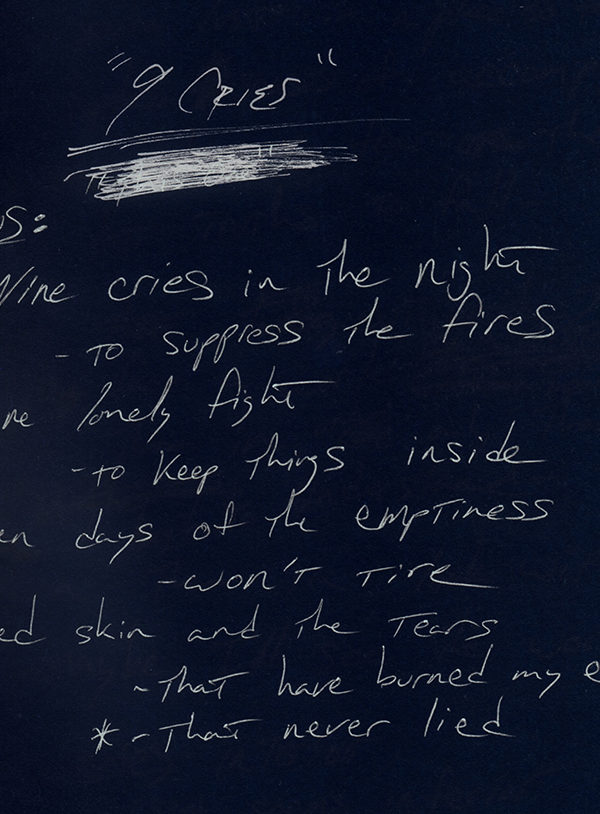 "9 CRIES"
us:
Nine cries in the night
- to suppress the fires
ne lonely fight
- to keep things inside
en days of the emptiness
- won't tire
ed skin and the tears
- that have burned my e
* - that never lied